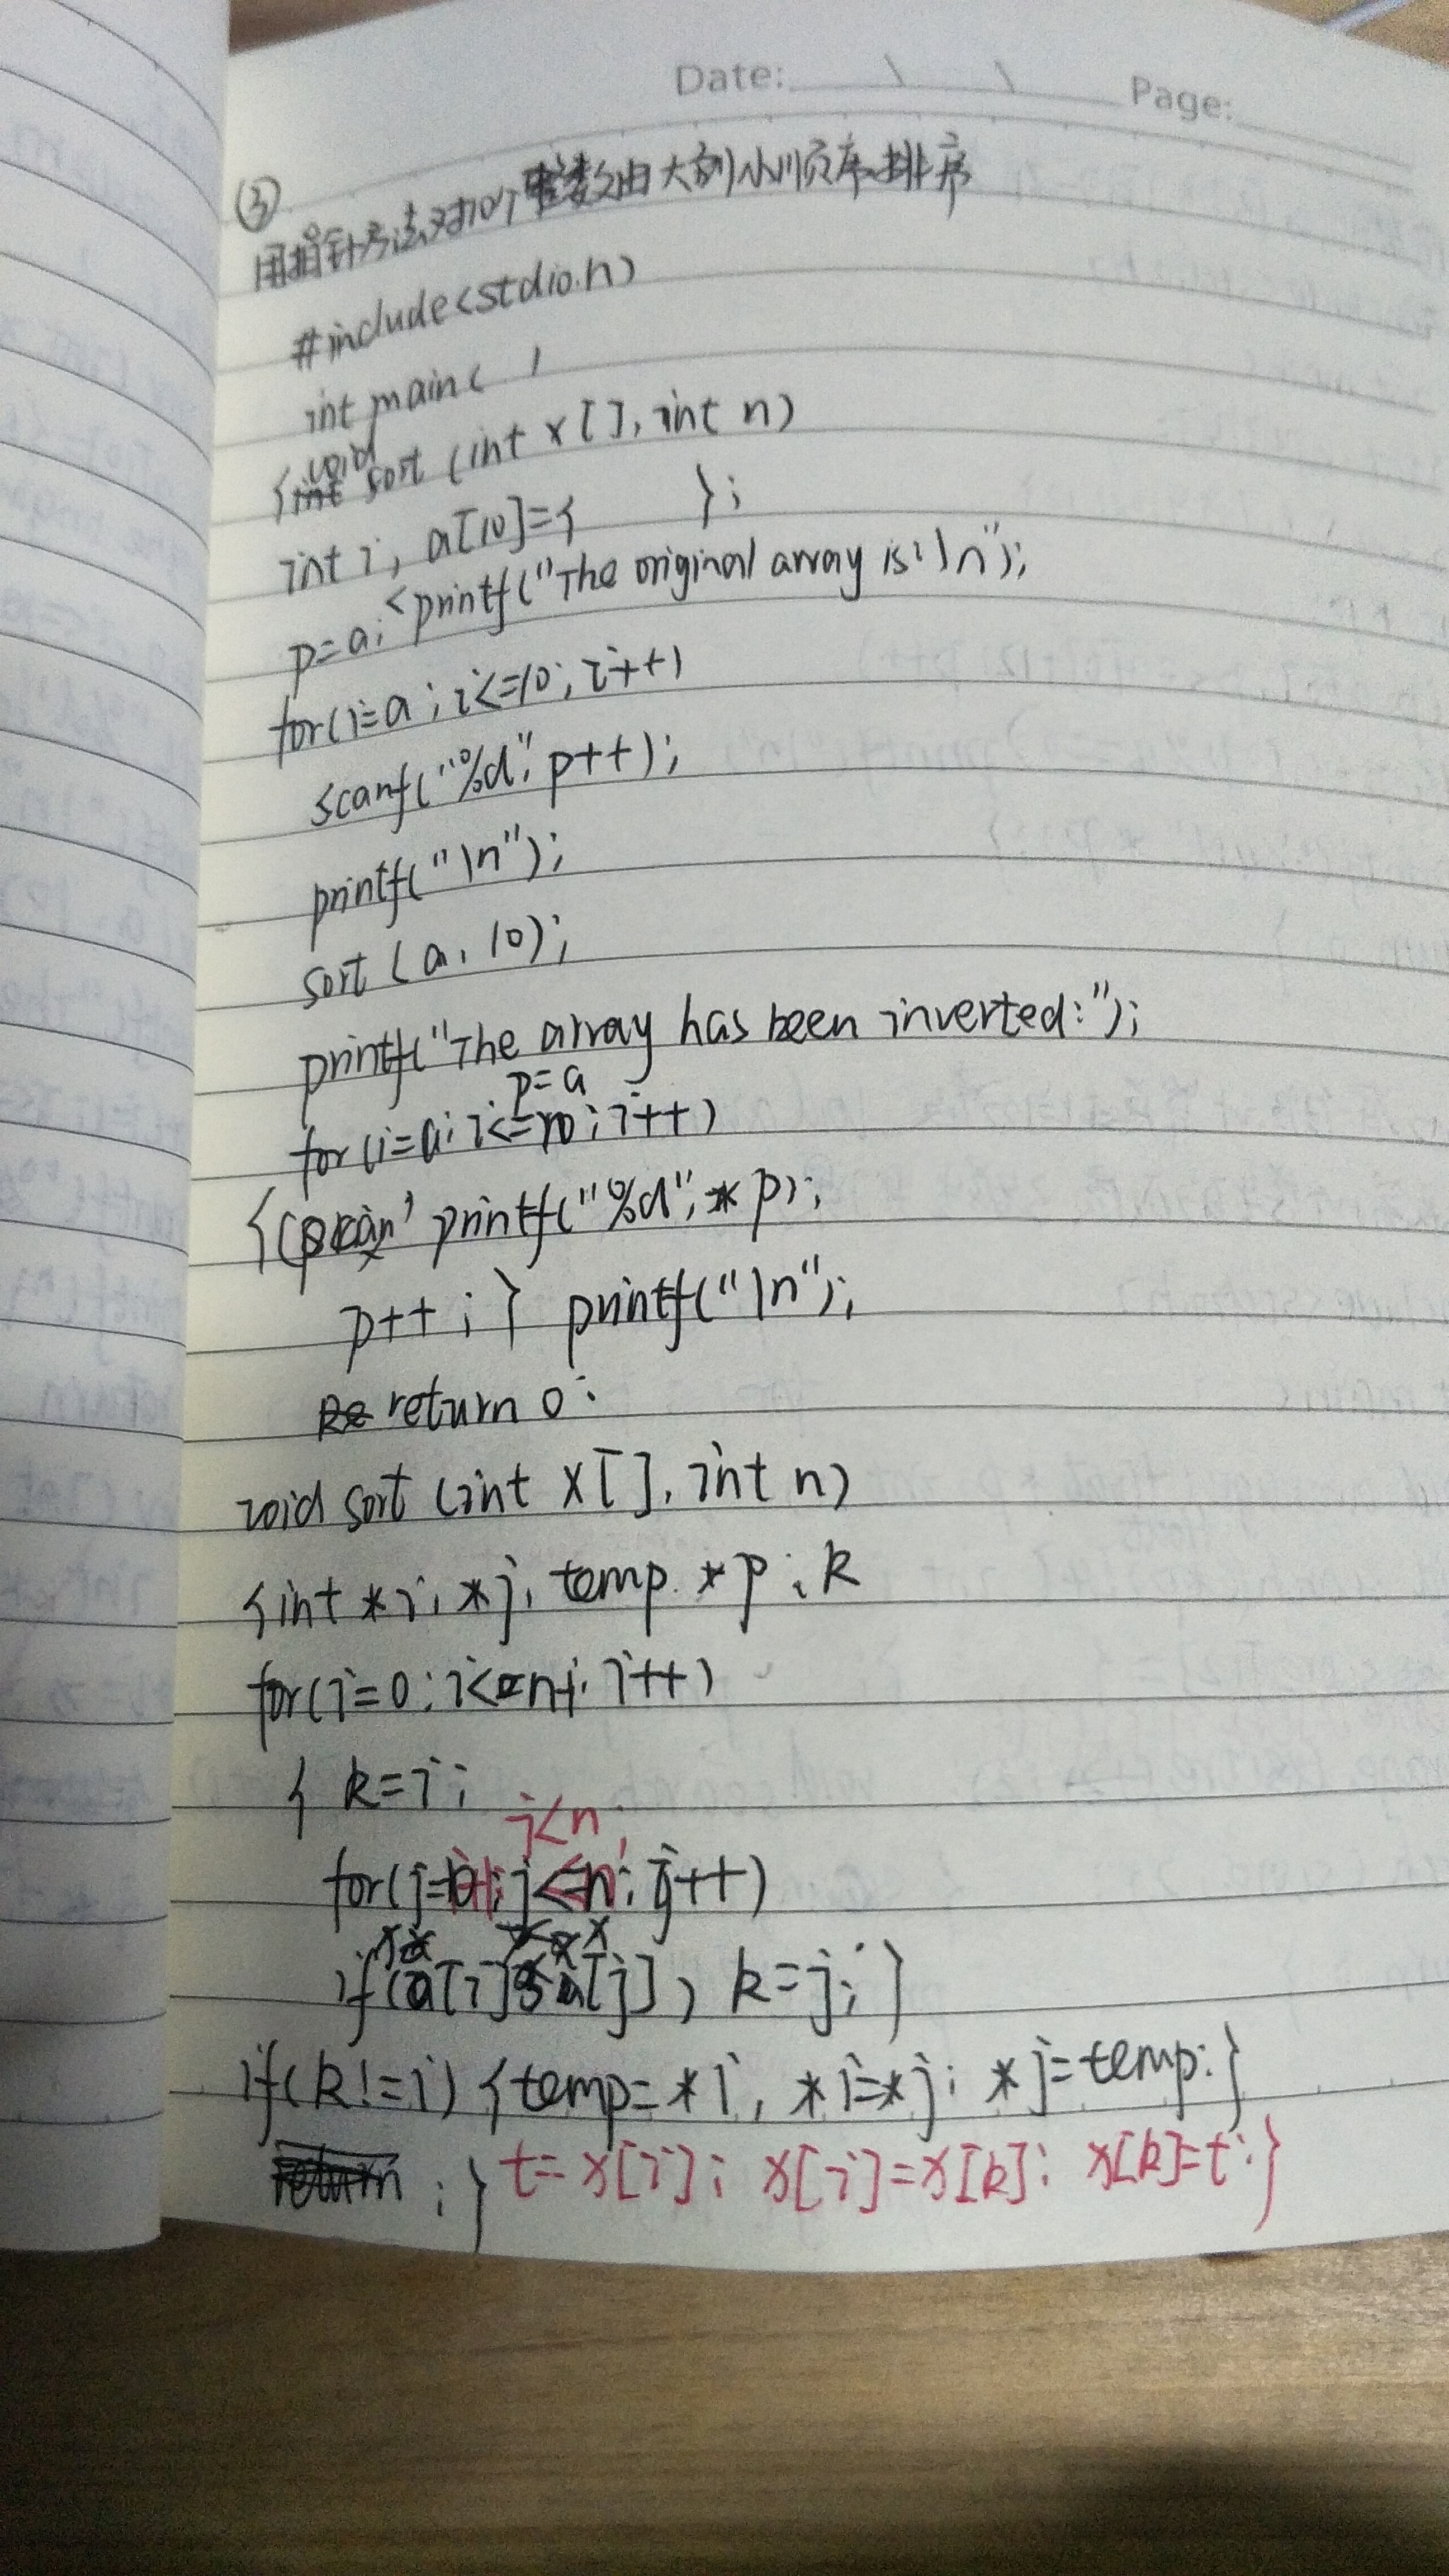 Date: \ \ Page:
③
用指针方法对10个整数由大到小顺序排序
#include<stdio.h>
int main( )
void
{int sort (int x[], int n)
int i, a[10]={ };
p=a; <printf("The original array is:\n");
for(i=a; i<=10; i++)
scanf("%d", p++);
printf("\n");
sort (a, 10);
printf("The array has been inverted:");
p=a
for(i=a; i<=10; i++)
{ printf("%d", *p);
p++; } printf("\n");
Re return 0;
void sort (int x[], int n)
{int *i, *j, temp. *p; k
for(i=0; i<=n-1; i++)
{ k=i;
j<n;
for(j=i+1; j<=n; j++)
x x
if(a[i]<a[j]) k=j;}
if(k!=i) {temp=*i, *i=*j; *j=temp;}
return ; } t=x[i]; x[i]=x[k]; x[k]=t;}